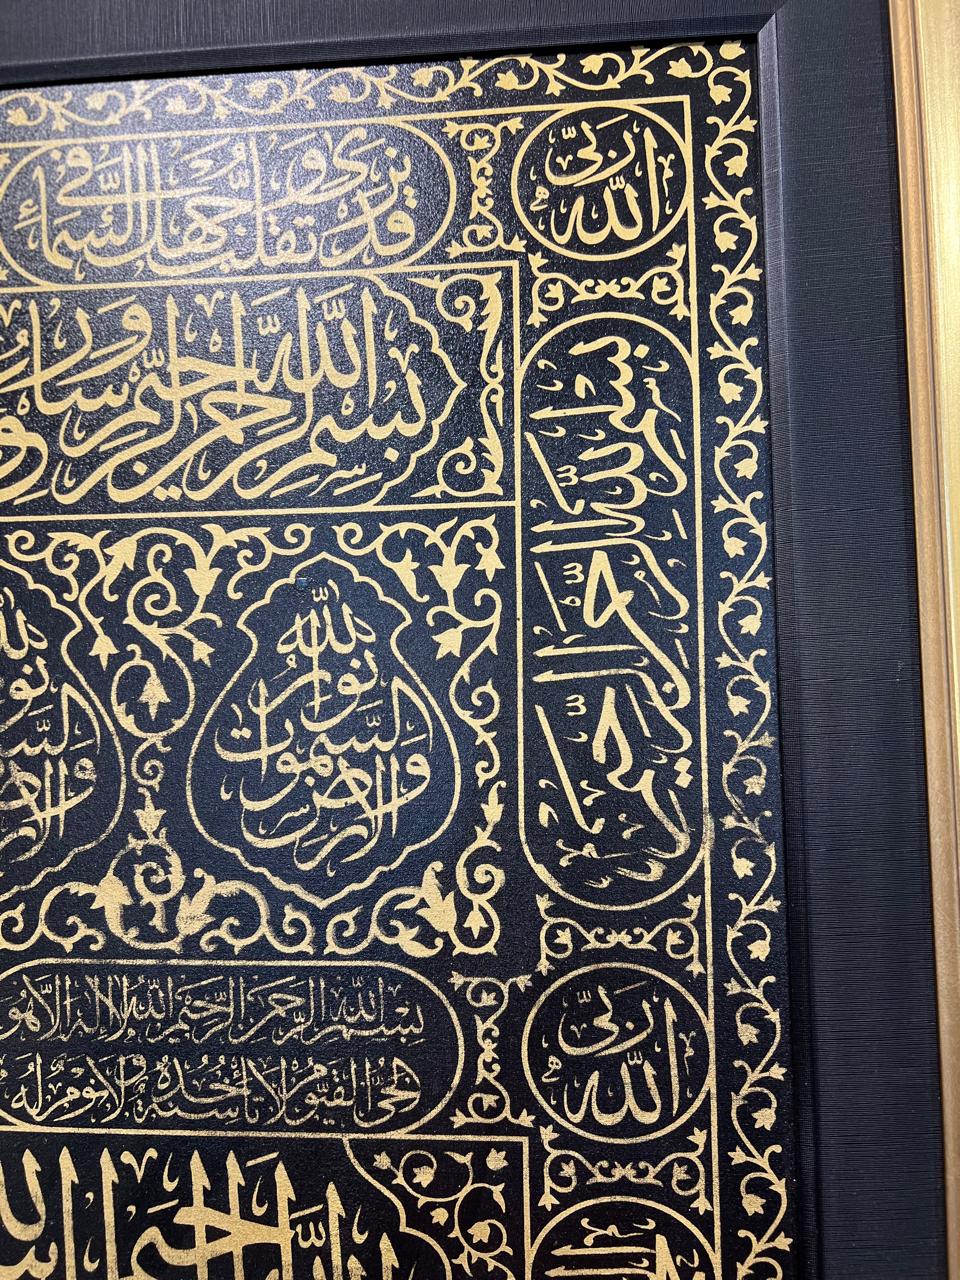 الله ربي
قد نرى تقلب وجهك في السماء
بسم الله الرحمن الرحيم
بسم الله الرحمن الرحيم
الله نور السموات والأرض
الله نور السموات والأرض
الله ربي
بسم الله الرحمن الرحيم الله لا إله إلا هو
الحي القيوم لا تأخذه سنة ولا نوم له